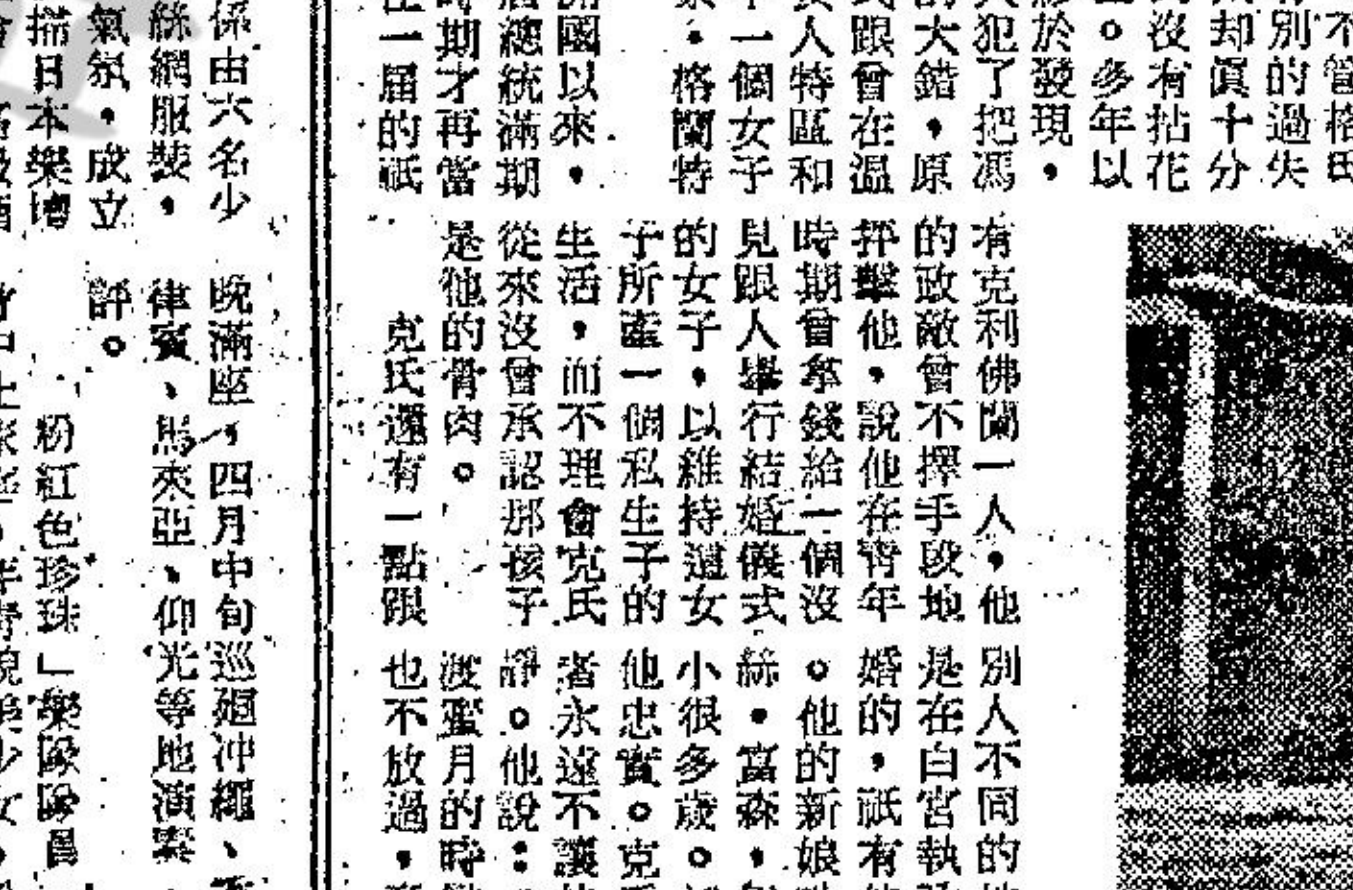 不管格氏
別的過失
却眞十分
沒有拈花
。多年以
於發現，
犯了把馮
大錯，原
跟曾在溫
人特區和
一個女子
．格蘭特
國以來，
總統滿期
期才再當
一屆的祇
有克利佛蘭一人，他
的政敵曾不擇手段地
抨擊他，說他在青年
時期曾拿錢給一個沒
見跟人舉行結婚儀式
的女子，以維持這女
子所產一個私生子的
生活，而不理會克氏
從來沒曾承認那孩子
是他的骨肉。
克氏還有一點跟
別人不同的
是在白宮執
婚的，祇有
。他的新娘
絲．富森，
小很多歲。
他忠實。克
者永遠不讓
靜。他說：
渡蜜月的時
也不放過，
係由六名少
絲網服裝，
氣氛，成立
搭日本樂壇
晚滿座，四月中旬巡廻沖繩、
律賓、馬來亞、仰光等地演奏，
評。
粉紅色珍珠」樂隊隊員